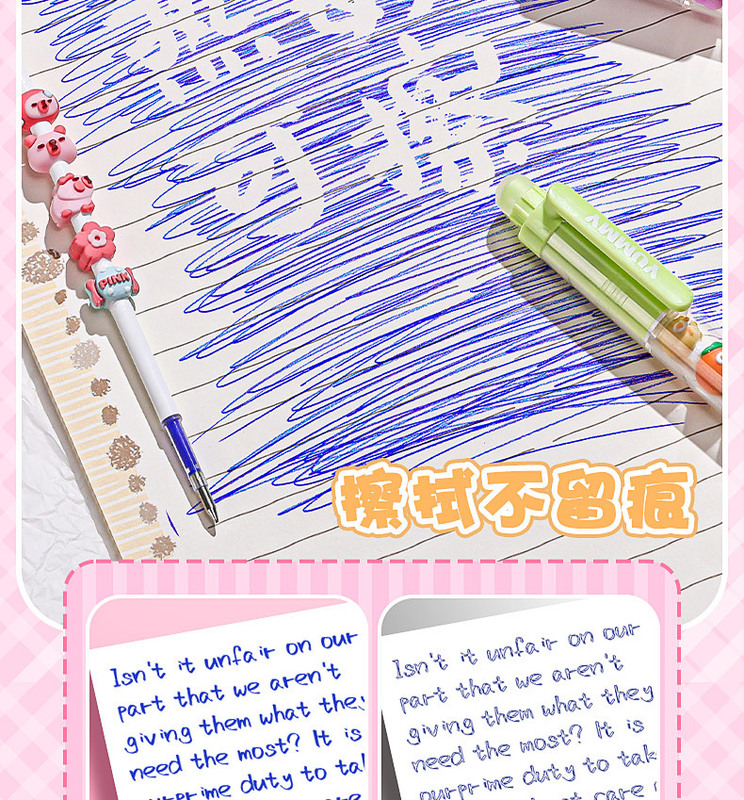 可擦
YUMMY
PINK
擦拭不留痕
Isn't it unfair on our
part that we aren't
giving them what they
need the most? It is
ourprime duty to tal
care
Isn't it unfair on our
part that we aren't
giving them what they
need the most? It is
ourprime duty to tak
t care